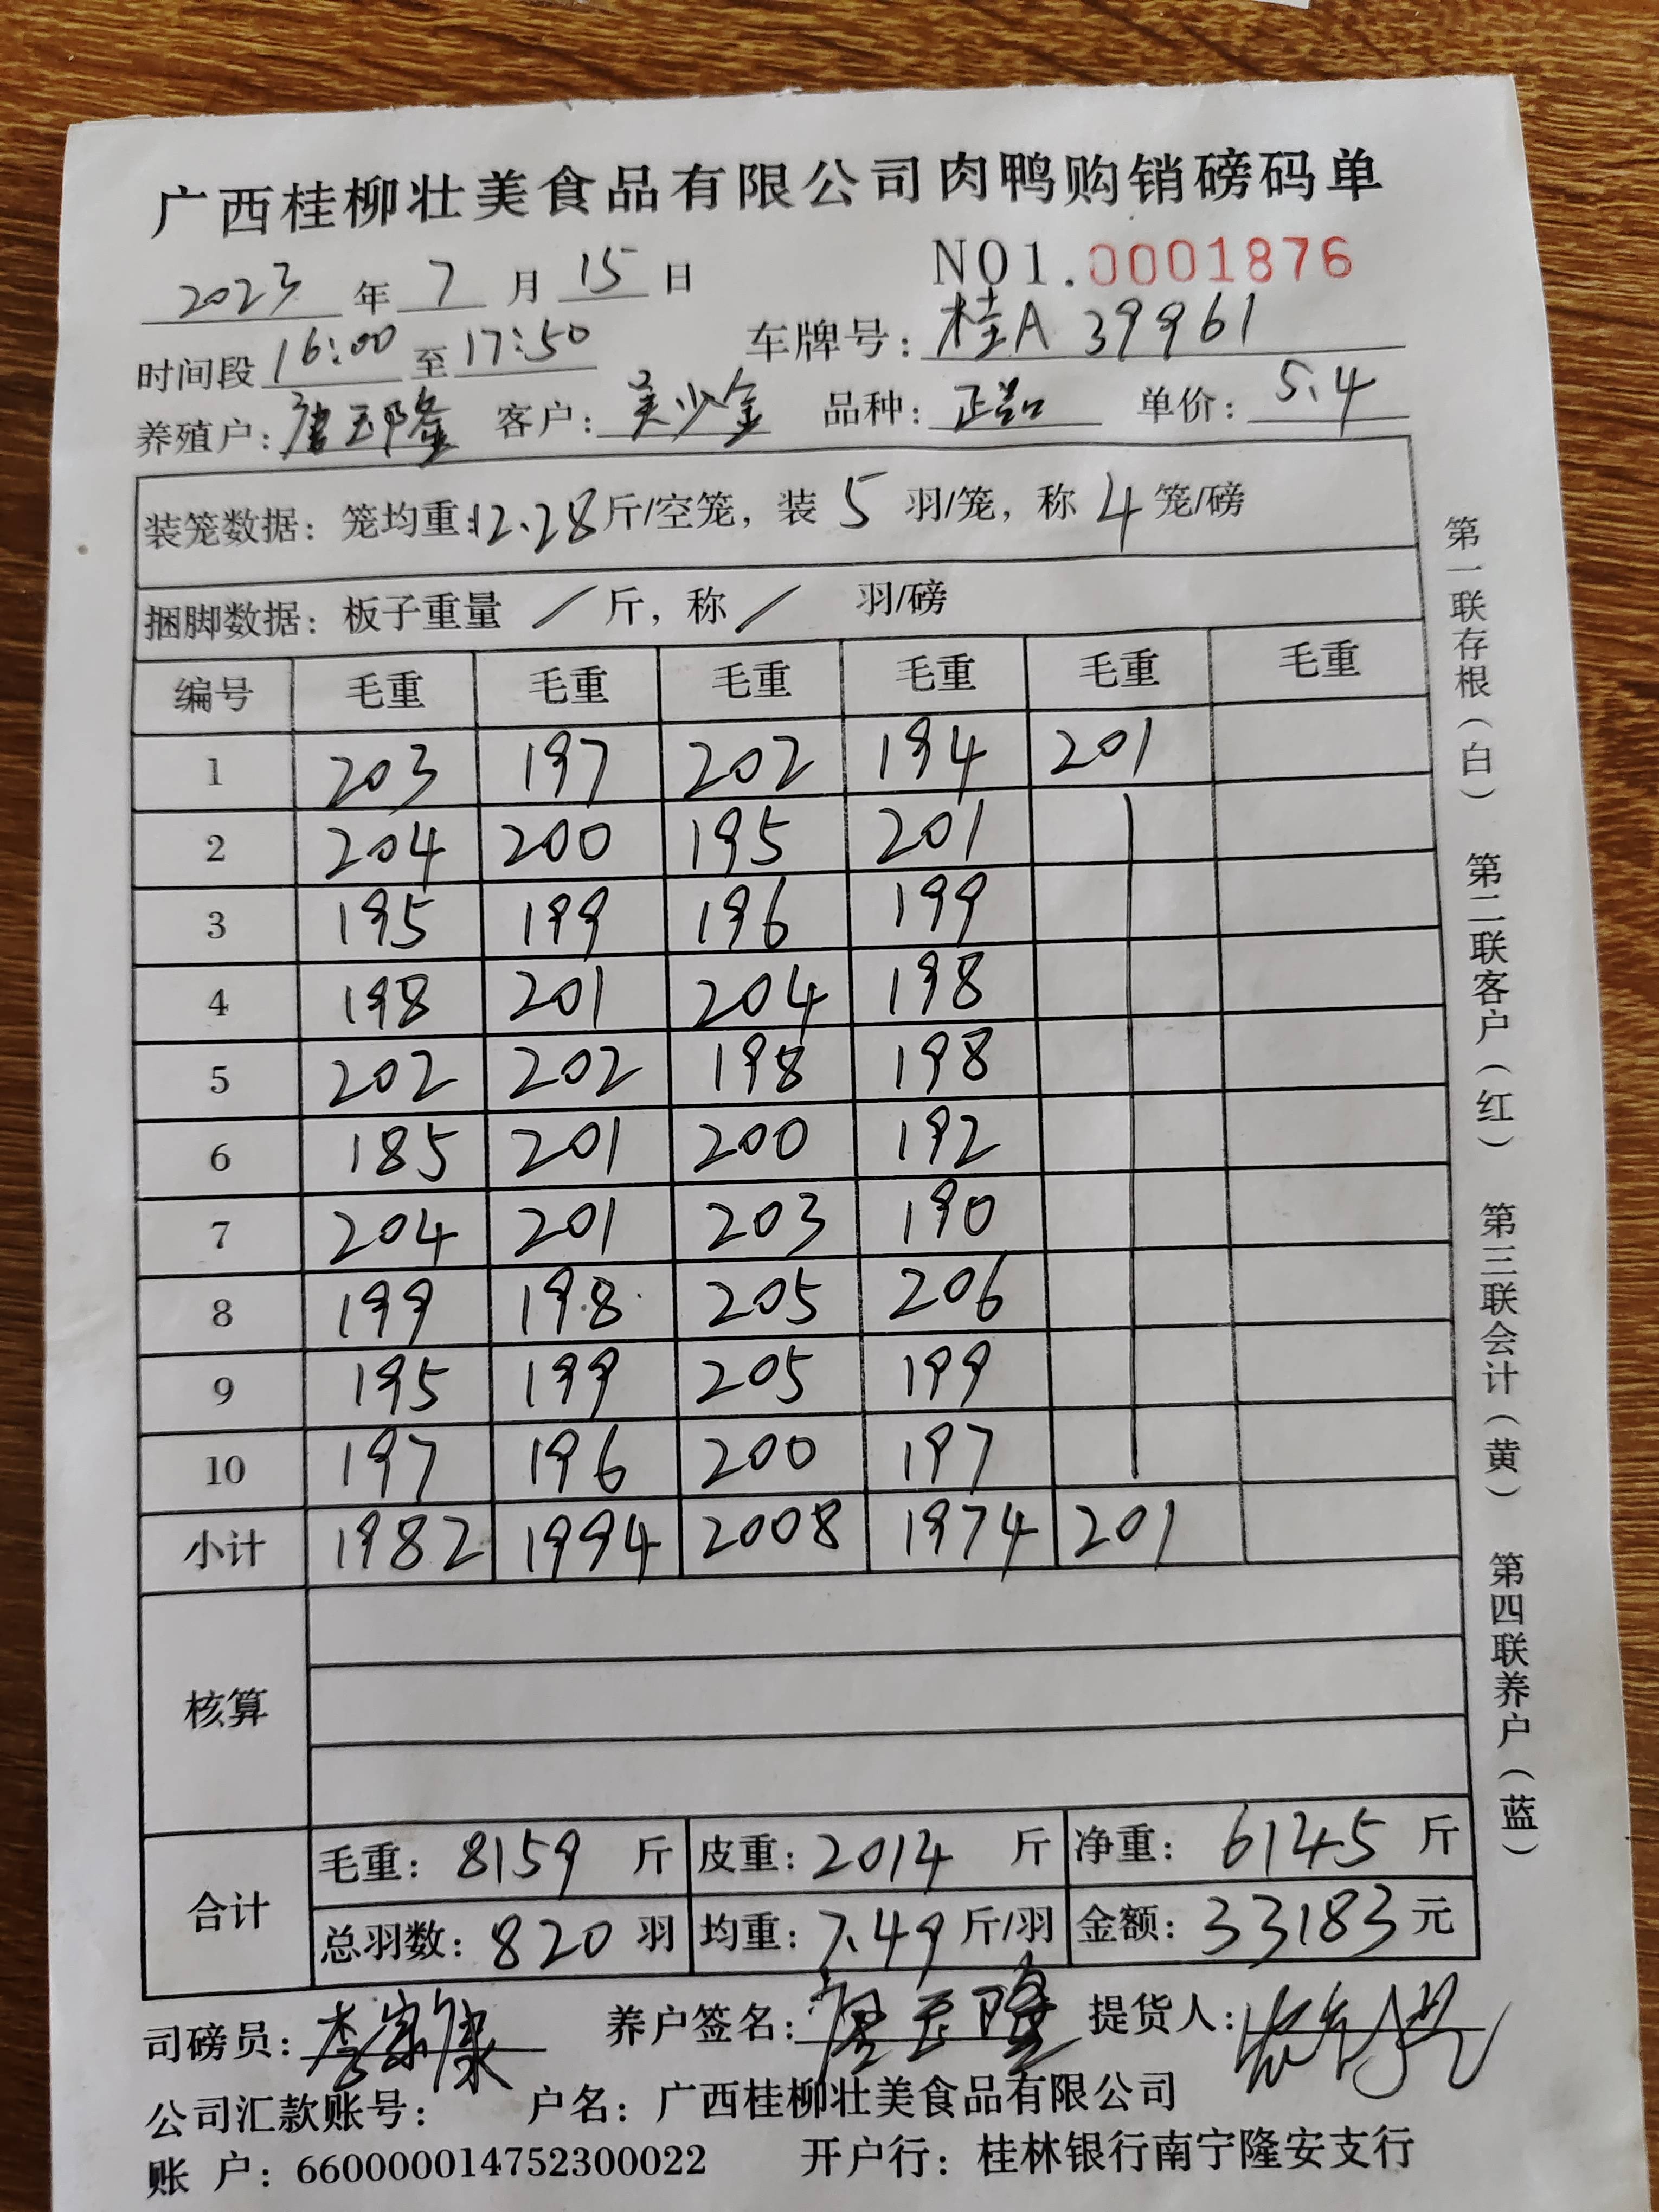 广西桂柳壮美食品有限公司肉鸭购销磅码单
2023年7月15日 NO1.0001876
时间段16:00至17:50 车牌号：桂A 39961
养殖户： 客户：美少金 品种：正品 单价：5.4
装笼数据：笼均重：12.28斤/空笼，装 5 羽/笼，称 4 笼/磅
捆脚数据：板子重量 / 斤，称 / 羽/磅
编号 毛重 毛重 毛重 毛重 毛重 毛重
1 203 197 202 194 201
2 204 200 195 201
3 195 199 196 199
4 198 201 204 198
5 202 202 198 198
6 185 201 200 192
7 204 201 203 190
8 199 198 205 206
9 195 199 205 199
10 197 196 200 197
小计 1982 1994 2008 1974 201
核算
合计
毛重：8159 斤 皮重：2014 斤 净重：6145 斤
总羽数：820 羽 均重：7.49 斤/羽 金额：33183 元
司磅员：李家康 养户签名： 提货人：
公司汇款账号： 户名：广西桂柳壮美食品有限公司
账 户：660000014752300022 开户行：桂林银行南宁隆安支行
第一联存根（白） 第二联客户（红） 第三联会计（黄） 第四联养户（蓝）